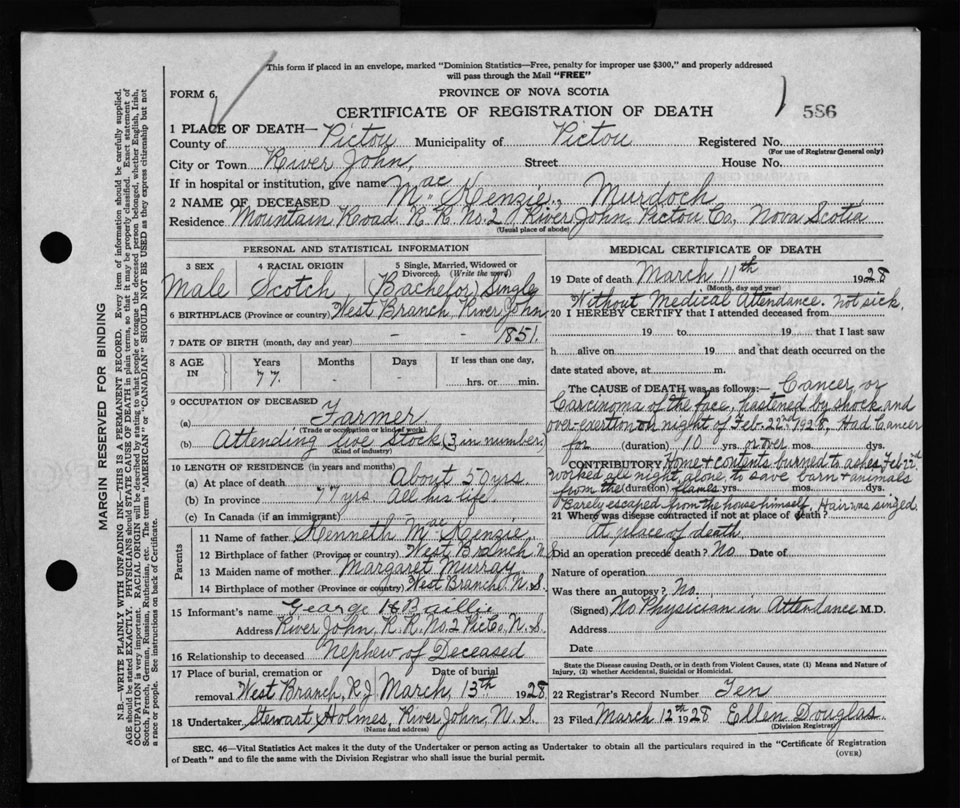 This form if placed in an envelope, marked "Dominion Statistics—Free, penalty for improper use $300," and properly addressed
will pass through the Mail "FREE"
FORM 6.
PROVINCE OF NOVA SCOTIA
CERTIFICATE OF REGISTRATION OF DEATH
586
1 PLACE OF DEATH—
County of Pictou Municipality of Pictou Registered No.
(For use of Registrar General only)
City or Town River John, Street House No.
If in hospital or institution, give name
2 NAME OF DECEASED MacKenzie, Murdoch
Residence Mountain Road R.R. No. 2 River John Pictou Co., Nova Scotia
(Usual place of abode)
PERSONAL AND STATISTICAL INFORMATION
3 SEX 4 RACIAL ORIGIN 5 Single, Married, Widowed or
Divorced. (Write the word)
Male Scotch (Bachelor) Single
6 BIRTHPLACE (Province or country) West Branch, River John
7 DATE OF BIRTH (month, day and year) - - 1851.
8 AGE IN Years Months Days If less than one day,
77 hrs. or min.
9 OCCUPATION OF DECEASED
(a) Farmer
(Trade or occupation or kind of work)
(b) Attending live stock (3 in number)
(Kind of industry)
10 LENGTH OF RESIDENCE (in years and months)
(a) At place of death About 50 yrs.
(b) In province 77 yrs All his life
(c) In Canada (if an immigrant) -
Parents
11 Name of father Kenneth MacKenzie
12 Birthplace of father (Province or country) West Branch N.S.
13 Maiden name of mother Margaret Murray
14 Birthplace of mother (Province or country) West Branch N.S.
15 Informant's name George H Baillie
Address River John, R.R. No. 2 Pic Co, N.S.
16 Relationship to deceased Nephew of Deceased
17 Place of burial, cremation or Date of burial
removal West Branch, R J March 13th 1928
18 Undertaker Stewart Holmes, River John, N.S.
(Name and address)
MEDICAL CERTIFICATE OF DEATH
19 Date of death March 11th 1928
(Month, day and year)
Without Medical Attendance. Not sick,
20 I HEREBY CERTIFY that I attended deceased from
19 to 19 that I last saw
h alive on 19 and that death occurred on the
date stated above, at m.
The CAUSE OF DEATH was as follows:— Cancer or
Carcinoma of the face, hastened by shock and
over-exertion on night of Feb. 22nd 1928, Had Cancer
for (duration) 10 yrs. or over mos. dys.
CONTRIBUTORY Home & contents burned to ashes Feb 22nd
Worked all night, alone, to save barn & animals
from the (duration) flames yrs. mos. dys.
Barely escaped from the house himself, Hair was singed
21 Where was disease contracted if not at place of death?
At place of death.
Did an operation precede death? No Date of
Nature of operation
Was there an autopsy? No.
(Signed) No Physician in Attendance M.D.
Address
Date
State the Disease causing Death, or in death from Violent Causes, state (1) Means and Nature of
Injury, (2) whether Accidental, Suicidal or Homicidal.
22 Registrar's Record Number Ten
23 Filed March 12th 1928 Ellen Douglas.
(Division Registrar)
SEC. 46—Vital Statistics Act makes it the duty of the Undertaker or person acting as Undertaker to obtain all the particulars required in the "Certificate of Registration
of Death" and to file the same with the Division Registrar who shall issue the burial permit.
(OVER)
MARGIN RESERVED FOR BINDING
N.B.—WRITE PLAINLY WITH UNFADING INK—THIS IS A PERMANENT RECORD. Every item of information should be carefully supplied.
AGE should be stated EXACTLY. PHYSICIANS should state CAUSE OF DEATH in plain terms, so that it may be properly classified. Exact statement of
OCCUPATION is very important. RACIAL ORIGIN will be described by stating to what people or tongue the deceased person belonged, whether English, Irish,
Scotch, French, German, Russian, Ruthenian, etc. The terms "AMERICAN" or "CANADIAN" SHOULD NOT BE USED as they express citizenship but not
a race or people. See instructions on back of Certificate.